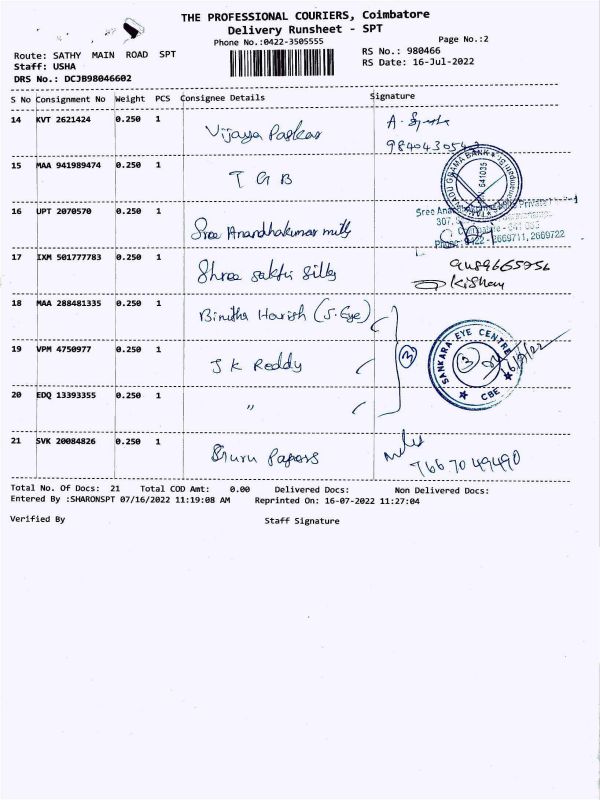 THE PROFESSIONAL COURIERS, Coimbatore
Delivery Runsheet - SPT
Phone No.:0422-3505555 Page No.:2
Route: SATHY MAIN ROAD SPT RS No.: 980466
Staff: USHA RS Date: 16-Jul-2022
DRS No.: DCJB98046602
S No Consignment No Weight PCS Consignee Details Signature
14 KVT 2621424 0.250 1 Vijaya Paskar A.
15 MAA 941989474 0.250 1 T G B GRAMA BANK 641035
16 UPT 2070570 0.250 1 Sree Anandhakumar mills Sree
307,
Coimbatore - 641
Phone: 0422 - 2669711, 2669722
17 IXM 501777783 0.250 1 Shree sakthi Silks
Kishan
18 MAA 288481335 0.250 1 Binitha Harish (S.Eye)
19 VPM 4750977 0.250 1 J K Reddy 3 SANKARA EYE CENTRE CBE 3
20 EDQ 13393355 0.250 1 "
21 SVK 20084826 0.250 1 Guru Papers 76670 49490
Total No. Of Docs: 21 Total COD Amt: 0.00 Delivered Docs: Non Delivered Docs:
Entered By :SHARONSPT 07/16/2022 11:19:08 AM Reprinted On: 16-07-2022 11:27:04
Verified By Staff Signature